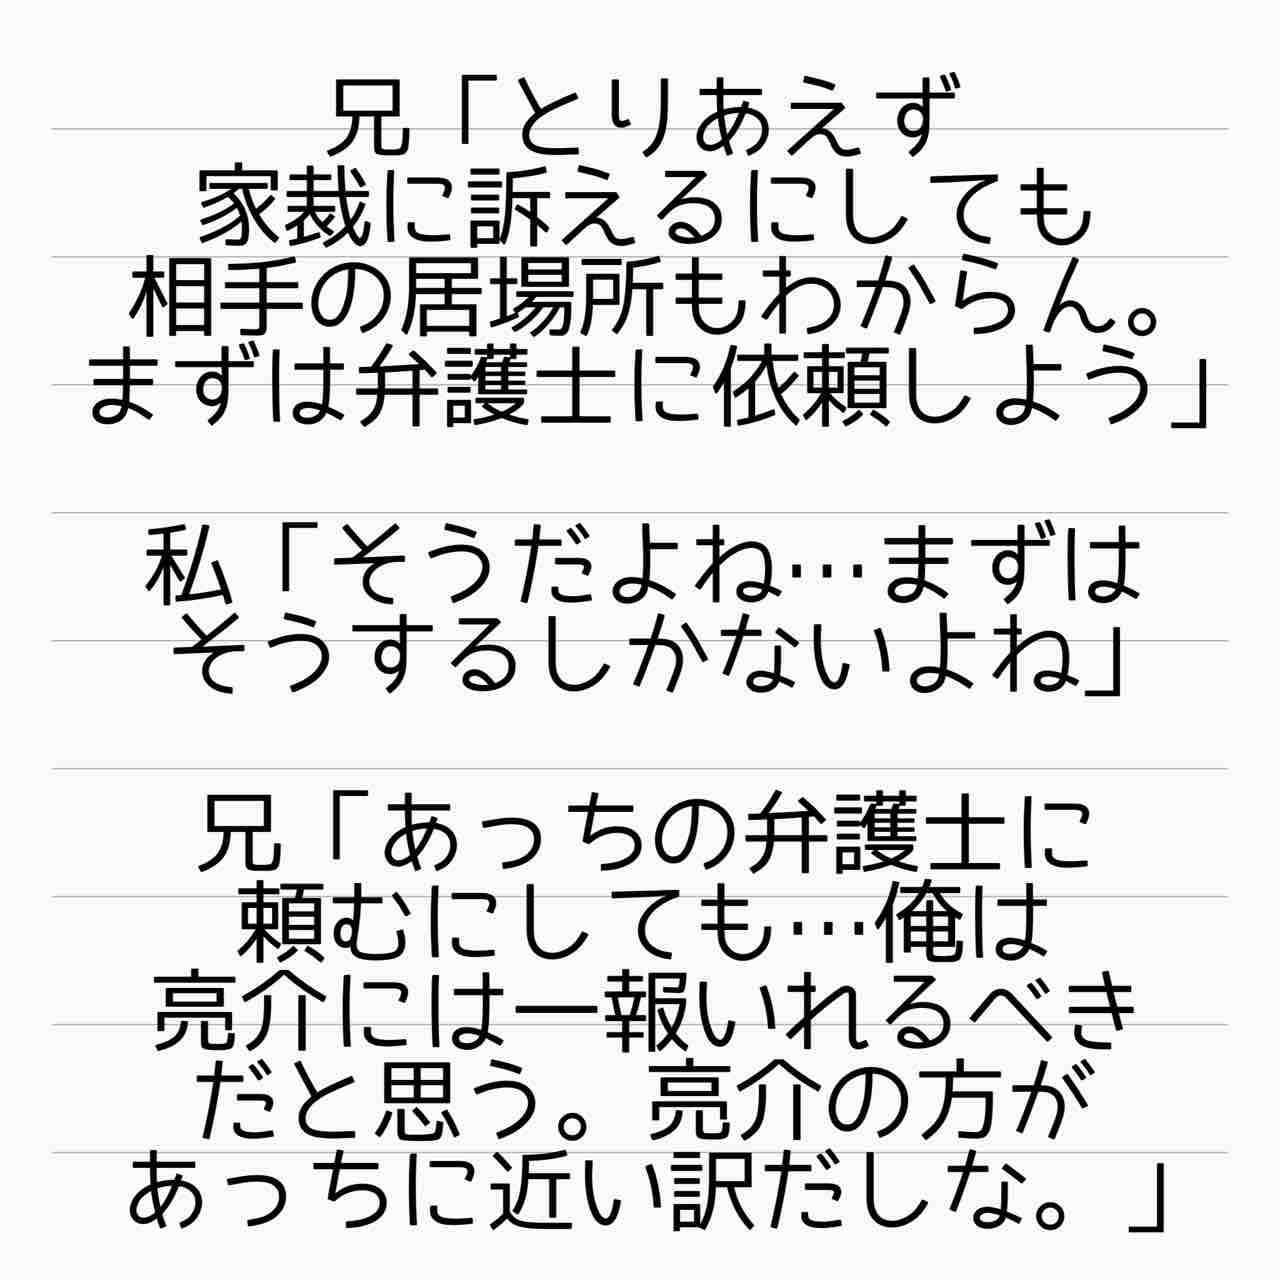 兄「とりあえず
家裁に訴えるにしても
相手の居場所もわからん。
まずは弁護士に依頼しよう」
私「そうだよね…まずは
そうするしかないよね」
兄「あっちの弁護士に
頼むにしても…俺は
亮介には一報いれるべき
だと思う。亮介の方が
あっちに近い訳だしな。」